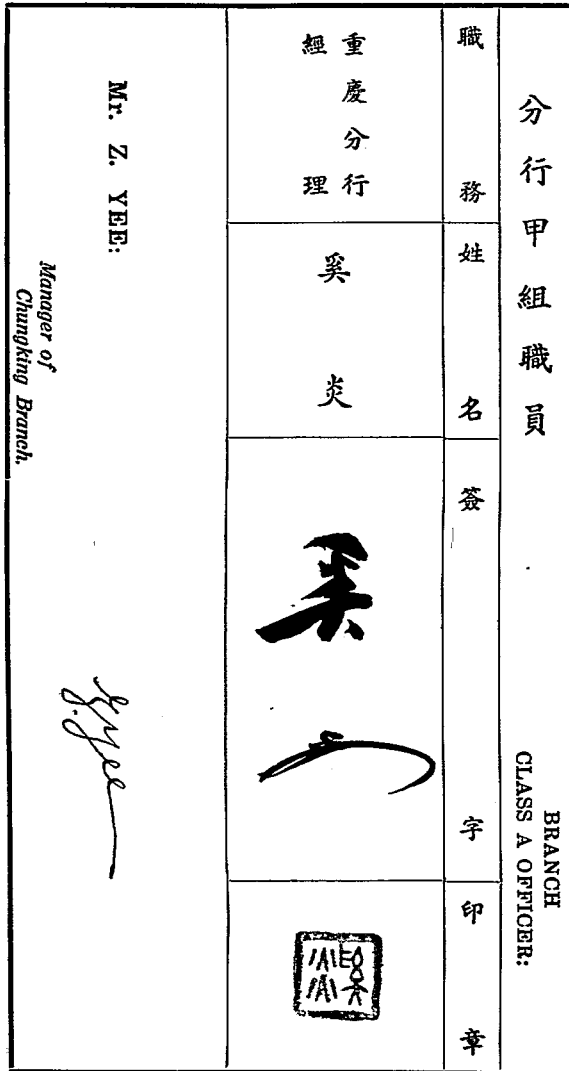 分行甲組職員
BRANCH
CLASS A OFFICER:
職務
姓名
簽字
印章
重慶分行
經理
奚炎
奚炎
奚炎
Mr. Z. YEE:
Manager of
Chungking Branch.
Z. Yee